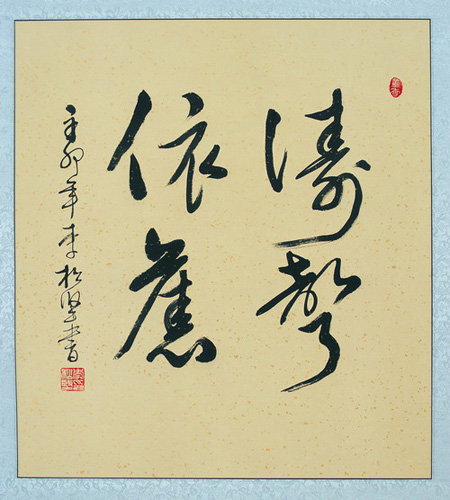 濤聲
依舊
辛卯年李松書